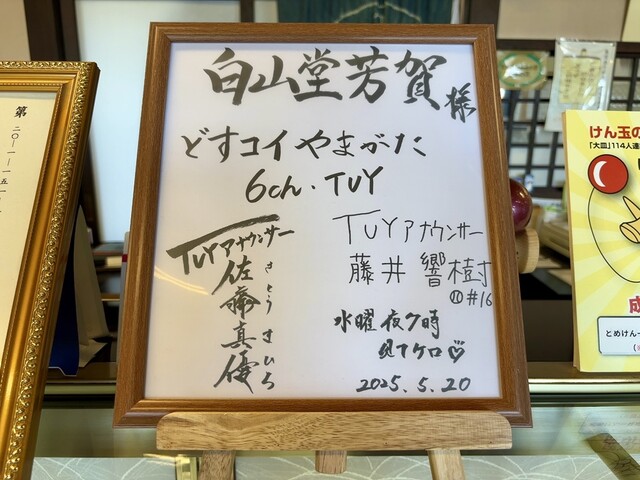 白山堂芳賀様
どすコイやまがた
6ch・TUY
TUYアナウンサー
佐藤真優
さとうまひろ
TUYアナウンサー
藤井 響樹
#16
水曜夜7時
見てケロ♡
2025.5.20
第
二〇-一-一五一
けん玉の
「大皿」114人連
成
とめけん